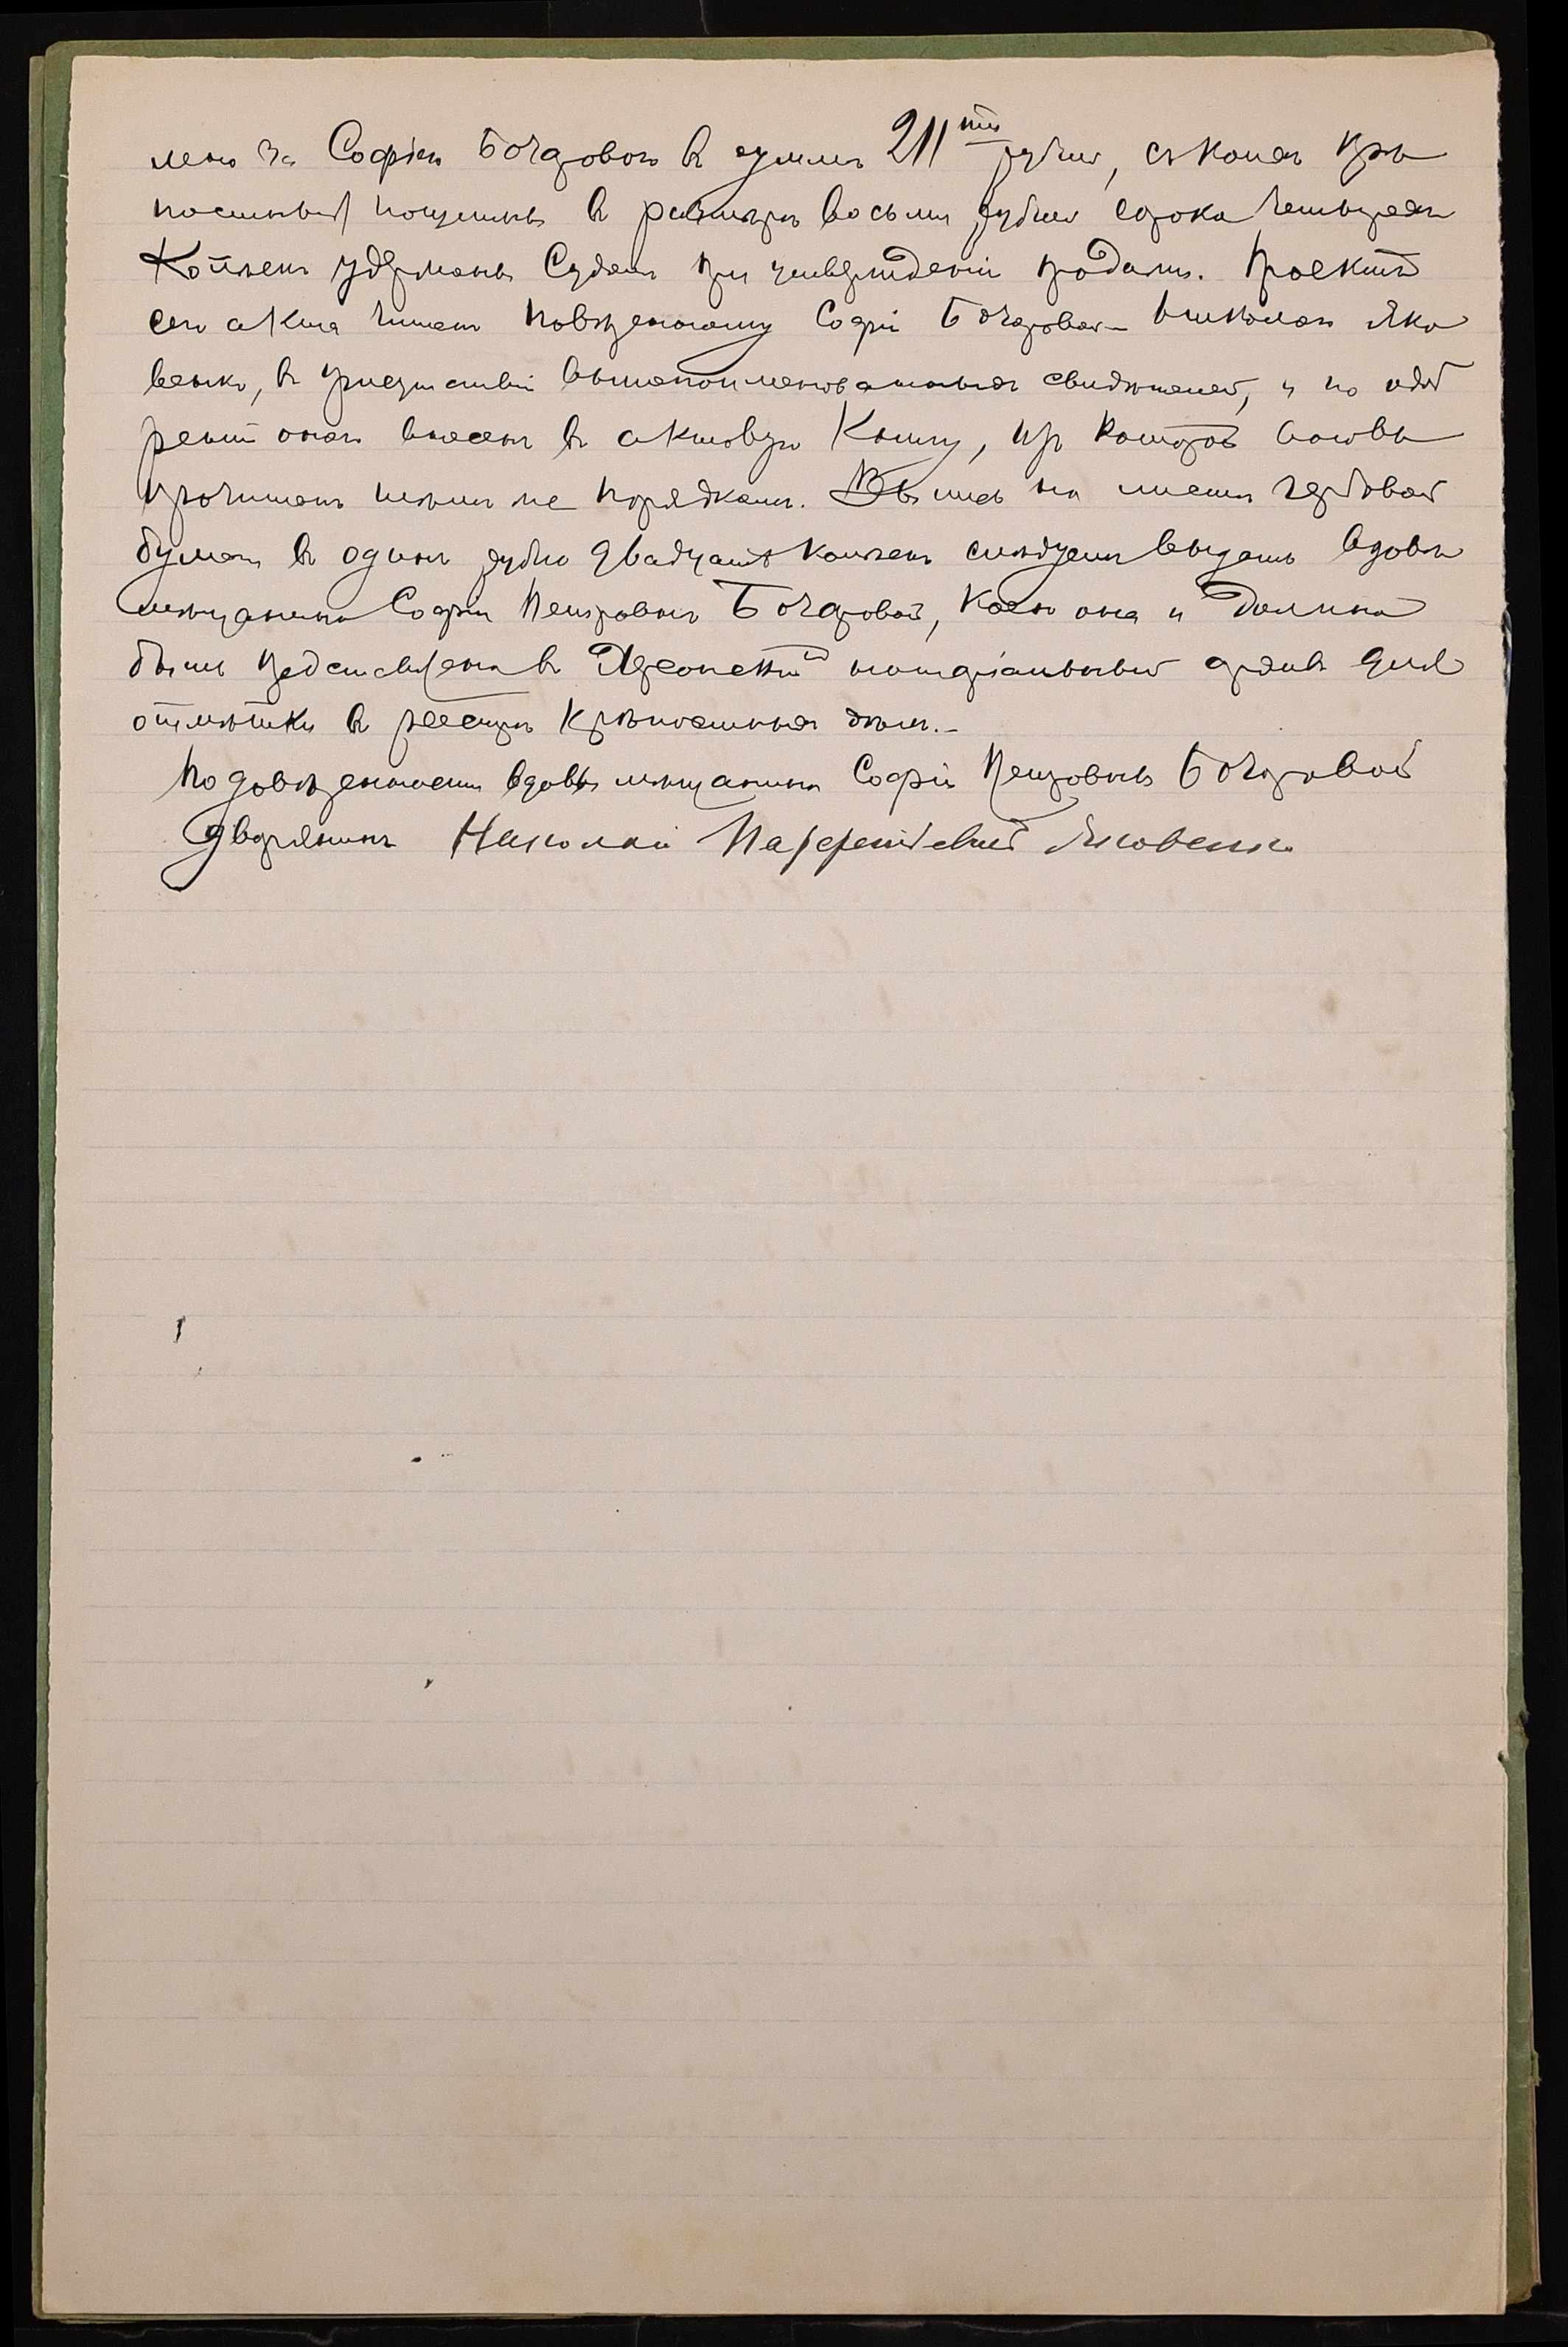 лено за Софіею Бочаровою въ суммѣ 211ти рублей, съ коихъ крѣ
постныя пошлины въ размѣрѣ восьми рублей сорока четырехъ
копѣекъ удержаны Судомъ при утвержденіи продажи. Проектъ
сего акта читанъ повѣренному Софіи Бочаровой Николаю Яко
венко, въ присутствіи вышепоименованныхъ свидѣтелей, и по одоб
реніи онаго внесенъ въ актовую книгу, изъ которой вновь
прочитанъ тѣмъ же порядкомъ. Выпись на листѣ гербовой
бумаги въ одинъ рубль двадцать копѣекъ слѣдуетъ выдать вдовѣ
мѣщанина Софіи Петровнѣ Бочаровой, коею она и должна
быть представлена въ Херсонскій нотаріальный архивъ для
отмѣтки въ реестрѣ крѣпостныхъ дѣлъ.-
По довѣренности вдовы мѣщанина Софіи Петровны Бочаровой
дворянинъ Николай Яковенко